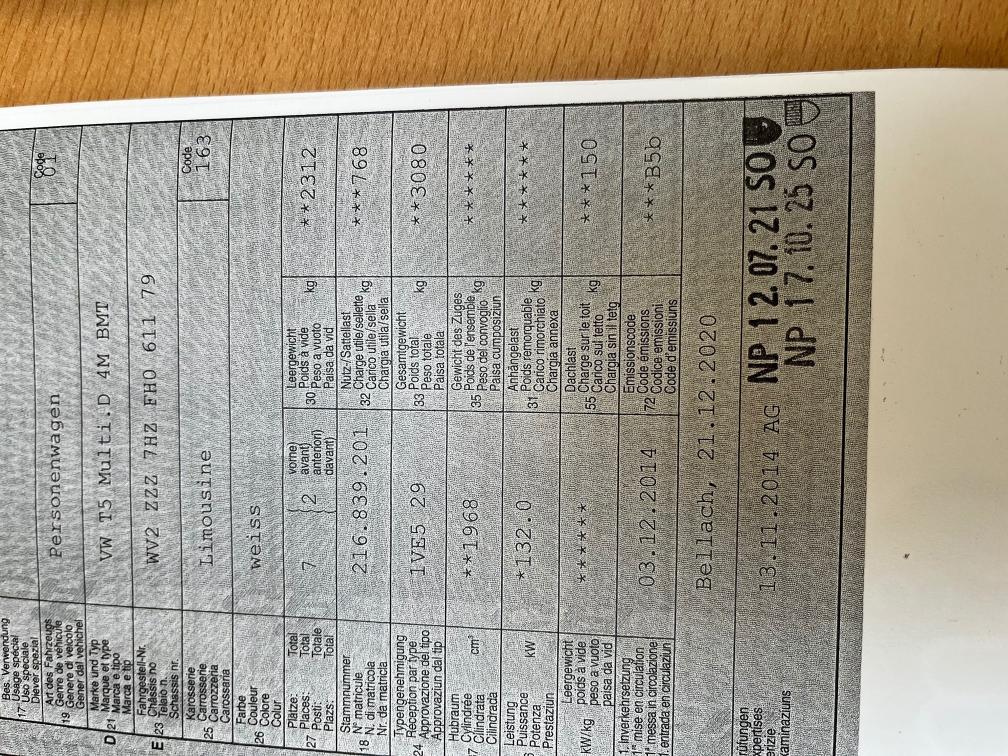 Bes. Verwendung
Usage spécial
17 Uso speciale
Diever spezial
Art des Fahrzeugs
Genre de véhicule
19 Genere di veicolo
Gener dal vehichel
Personenwagen
Code
01
Marke und Typ
D 21 Marque et type
Marca e tipo
Marca e tip
VW T5 Multi.D 4M BMT
Fahrgestell-Nr.
E 23 Châssis no
Telaio n.
Schassis nr.
WV2 ZZZ 7HZ FH0 611 79
Karosserie
Carrosserie
25 Carrozzeria
Carossaria
Limousine
Code
163
Farbe
Couleur
26 Colore
Colur
weiss
Plätze: Total
Places: Total
27 Posti: Totale
Plazs: Total
7
2
vorne)
avant)
anteriori)
davant)
Leergewicht
Poids à vide
30 Peso a vuoto
Paisa da vid
kg
**2312
Stammnummer
N° matricule
18 N. di matricola
Nr. da matricla
216.839.201
Nutz-/Sattellast
Charge utile/sellette
32 Carico utile/sella
Chargia utila/sella
kg
***768
Typengenehmigung
Réception par type
24 Approvazione del tipo
Approvaziun dal tip
1VE5 29
Gesamtgewicht
Poids total
33 Peso totale
Paisa totala
kg
**3080
Hubraum
Cylindrée
7 Cilindrata
Cilindrada
cm³
**1968
Gewicht des Zuges
Poids de l'ensemble
35 Peso del convoglio
Paisa cumposiziun
kg
******
Leistung
Puissance
Potenza
Prestaziun
kW
*132.0
Anhängelast
Poids remorquable
31 Carico rimorchiato
Chargia annexa
kg
******
kW/kg
Leergewicht
poids à vide
peso a vuoto
paisa da vid
******
Dachlast
Charge sur le toit
55 Carico sul tetto
Chargia sin il tetg
kg
***150
1. Inverkehrsetzung
1re mise en circulation
1a messa in circolazione
1. entrada en circulaziun
03.12.2014
Emissionscode
Code émissions
72 Codice emissioni
Code d'emissiuns
***B5b
Bellach, 21.12.2020
13.11.2014 AG NP 12.07.21 SO
NP 17.10.25 SO